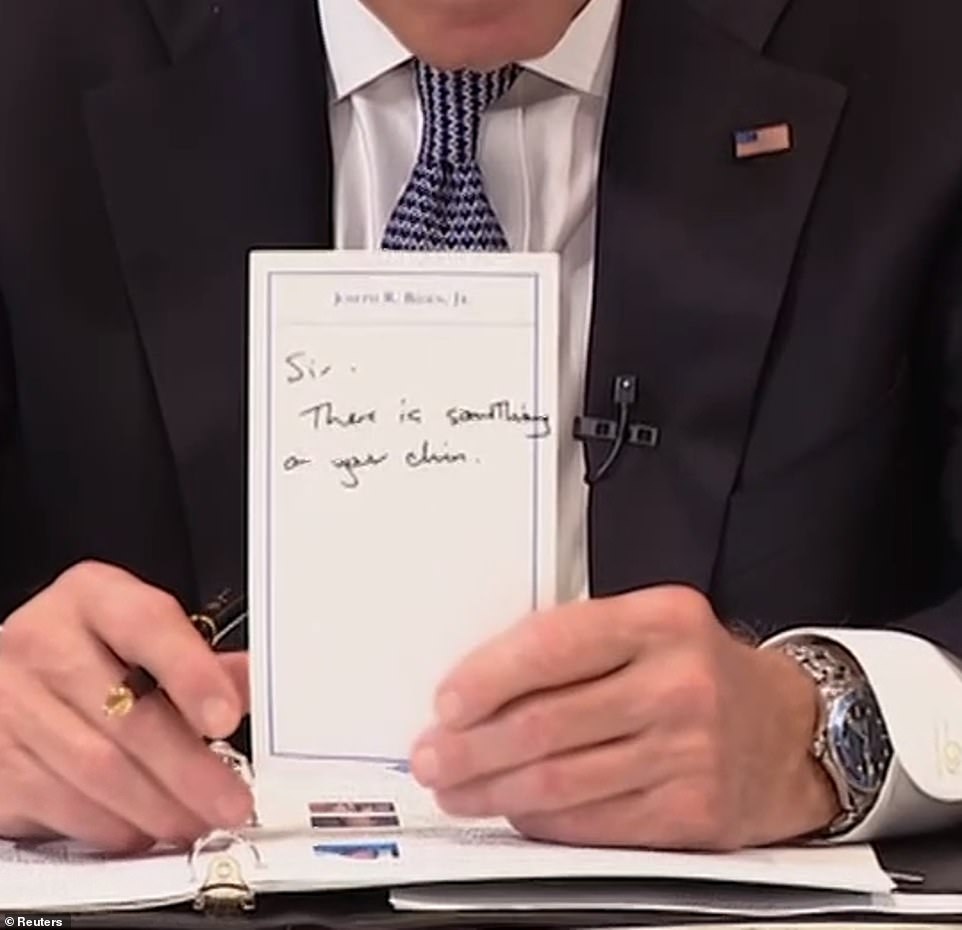 JOSEPH R. BIDEN, JR.
Sir.
There is something
on your chin.
© Reuters